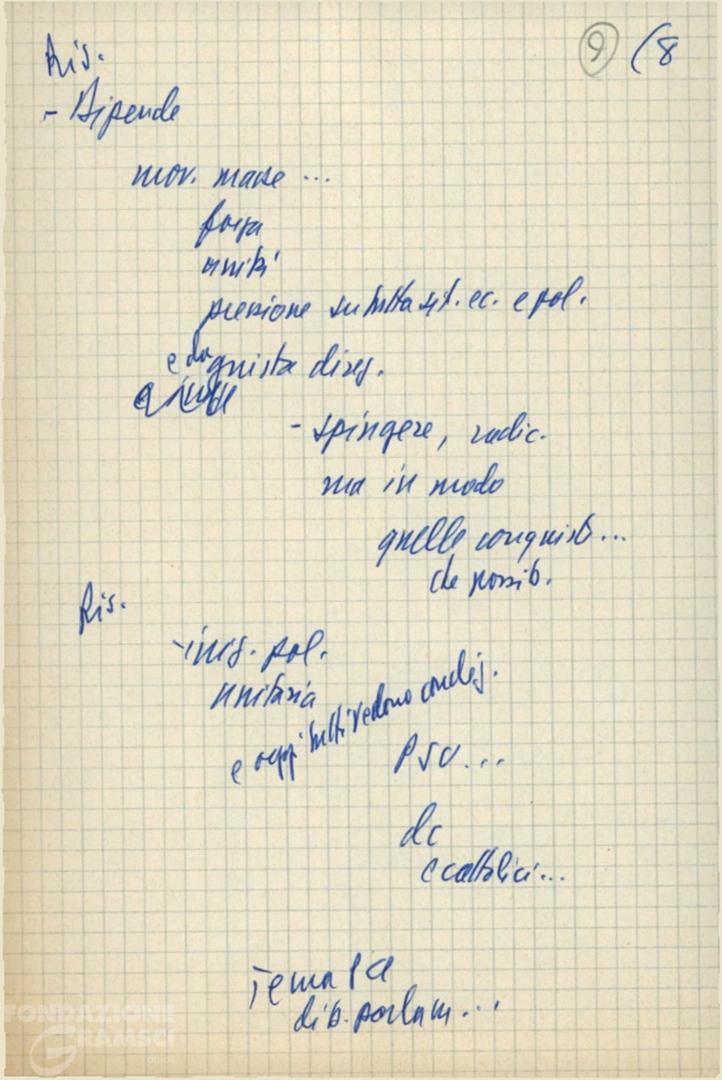 Ris.
9 (8
- Dipende
mov. masse ...
forza
unità
pressione su tutta sit. ec. e pol.
e da giusta direz.
- spingere, radic.
ma in modo
quelle conquiste...
che possib.
Ris.
- iniz. pol.
unitaria
e oggi tutti vedono condiz.
PSU...
dc
e cattolici...
Tema PCI
dib. parlam...
FONDAZIONE
GRAMSCI